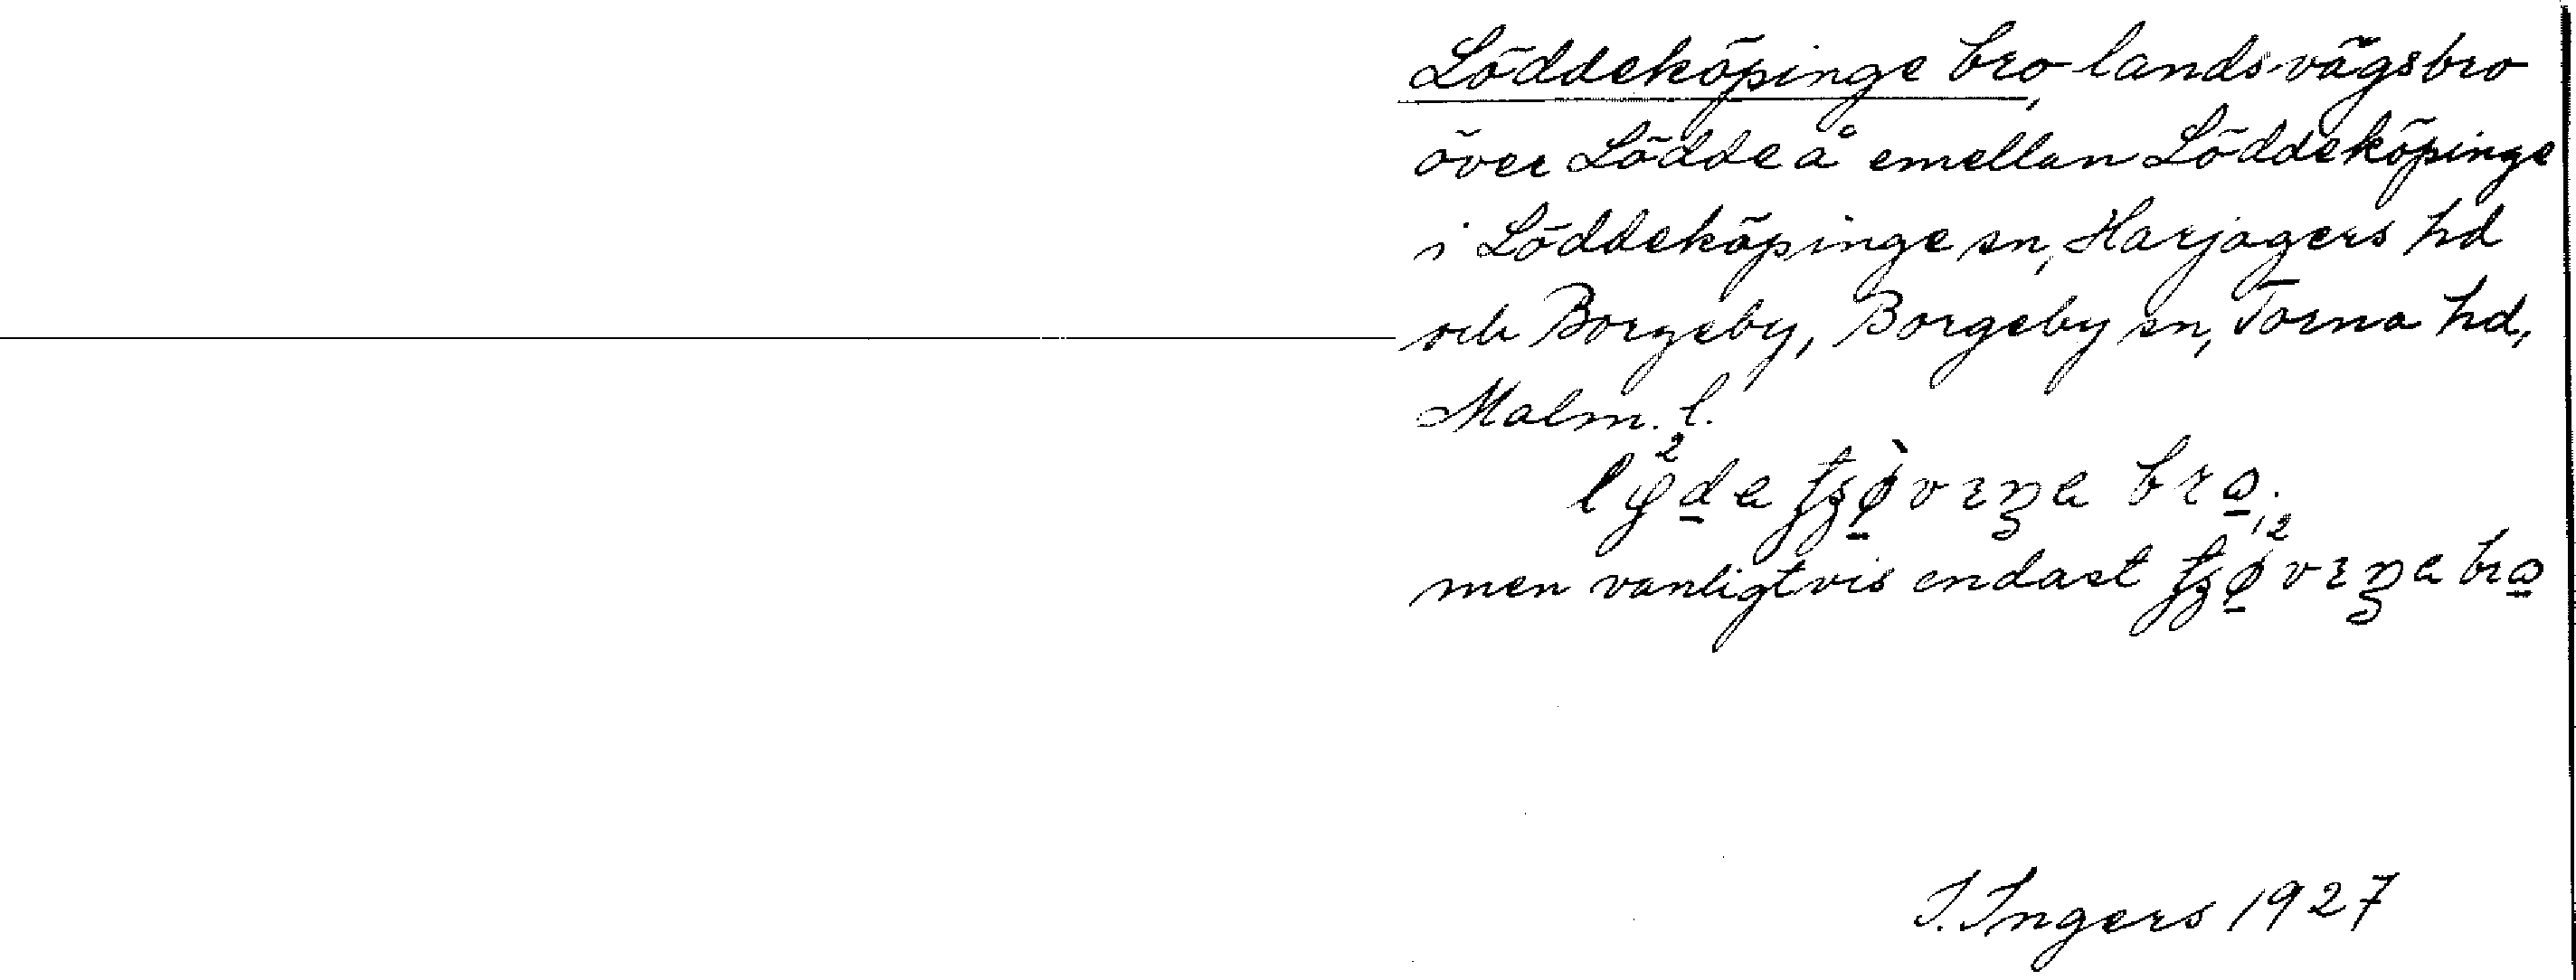 Löddeköpinge bro, landsvägsbro
över Lödde å emellan Löddeköpinge
i Löddeköpinge sn, Harjagers hd
och Borgeby, Borgeby sn, Torna hd,
Malm. l.
bro.
men vanligtvis endast
J. Ingers 1927